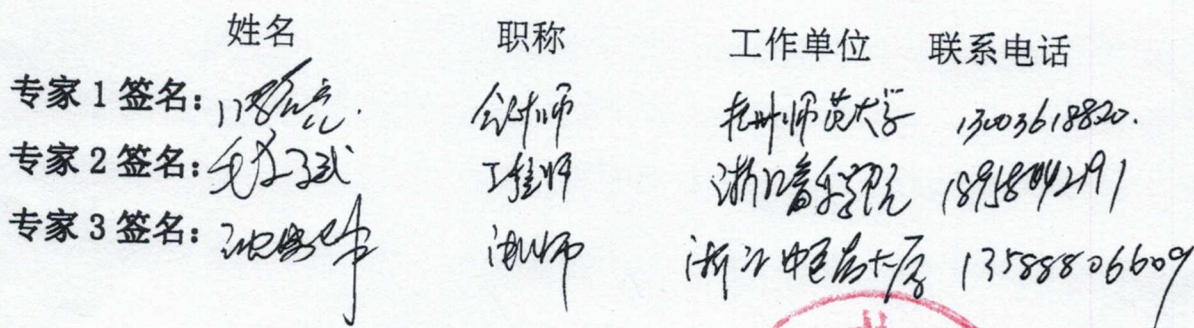 姓名 职称 工作单位 联系电话
专家1签名： 会计师 杭州师范大学 13003618820.
专家2签名： 工程师 浙江音乐学院 18958042191
专家3签名： 浙江中医药大学 13588806609